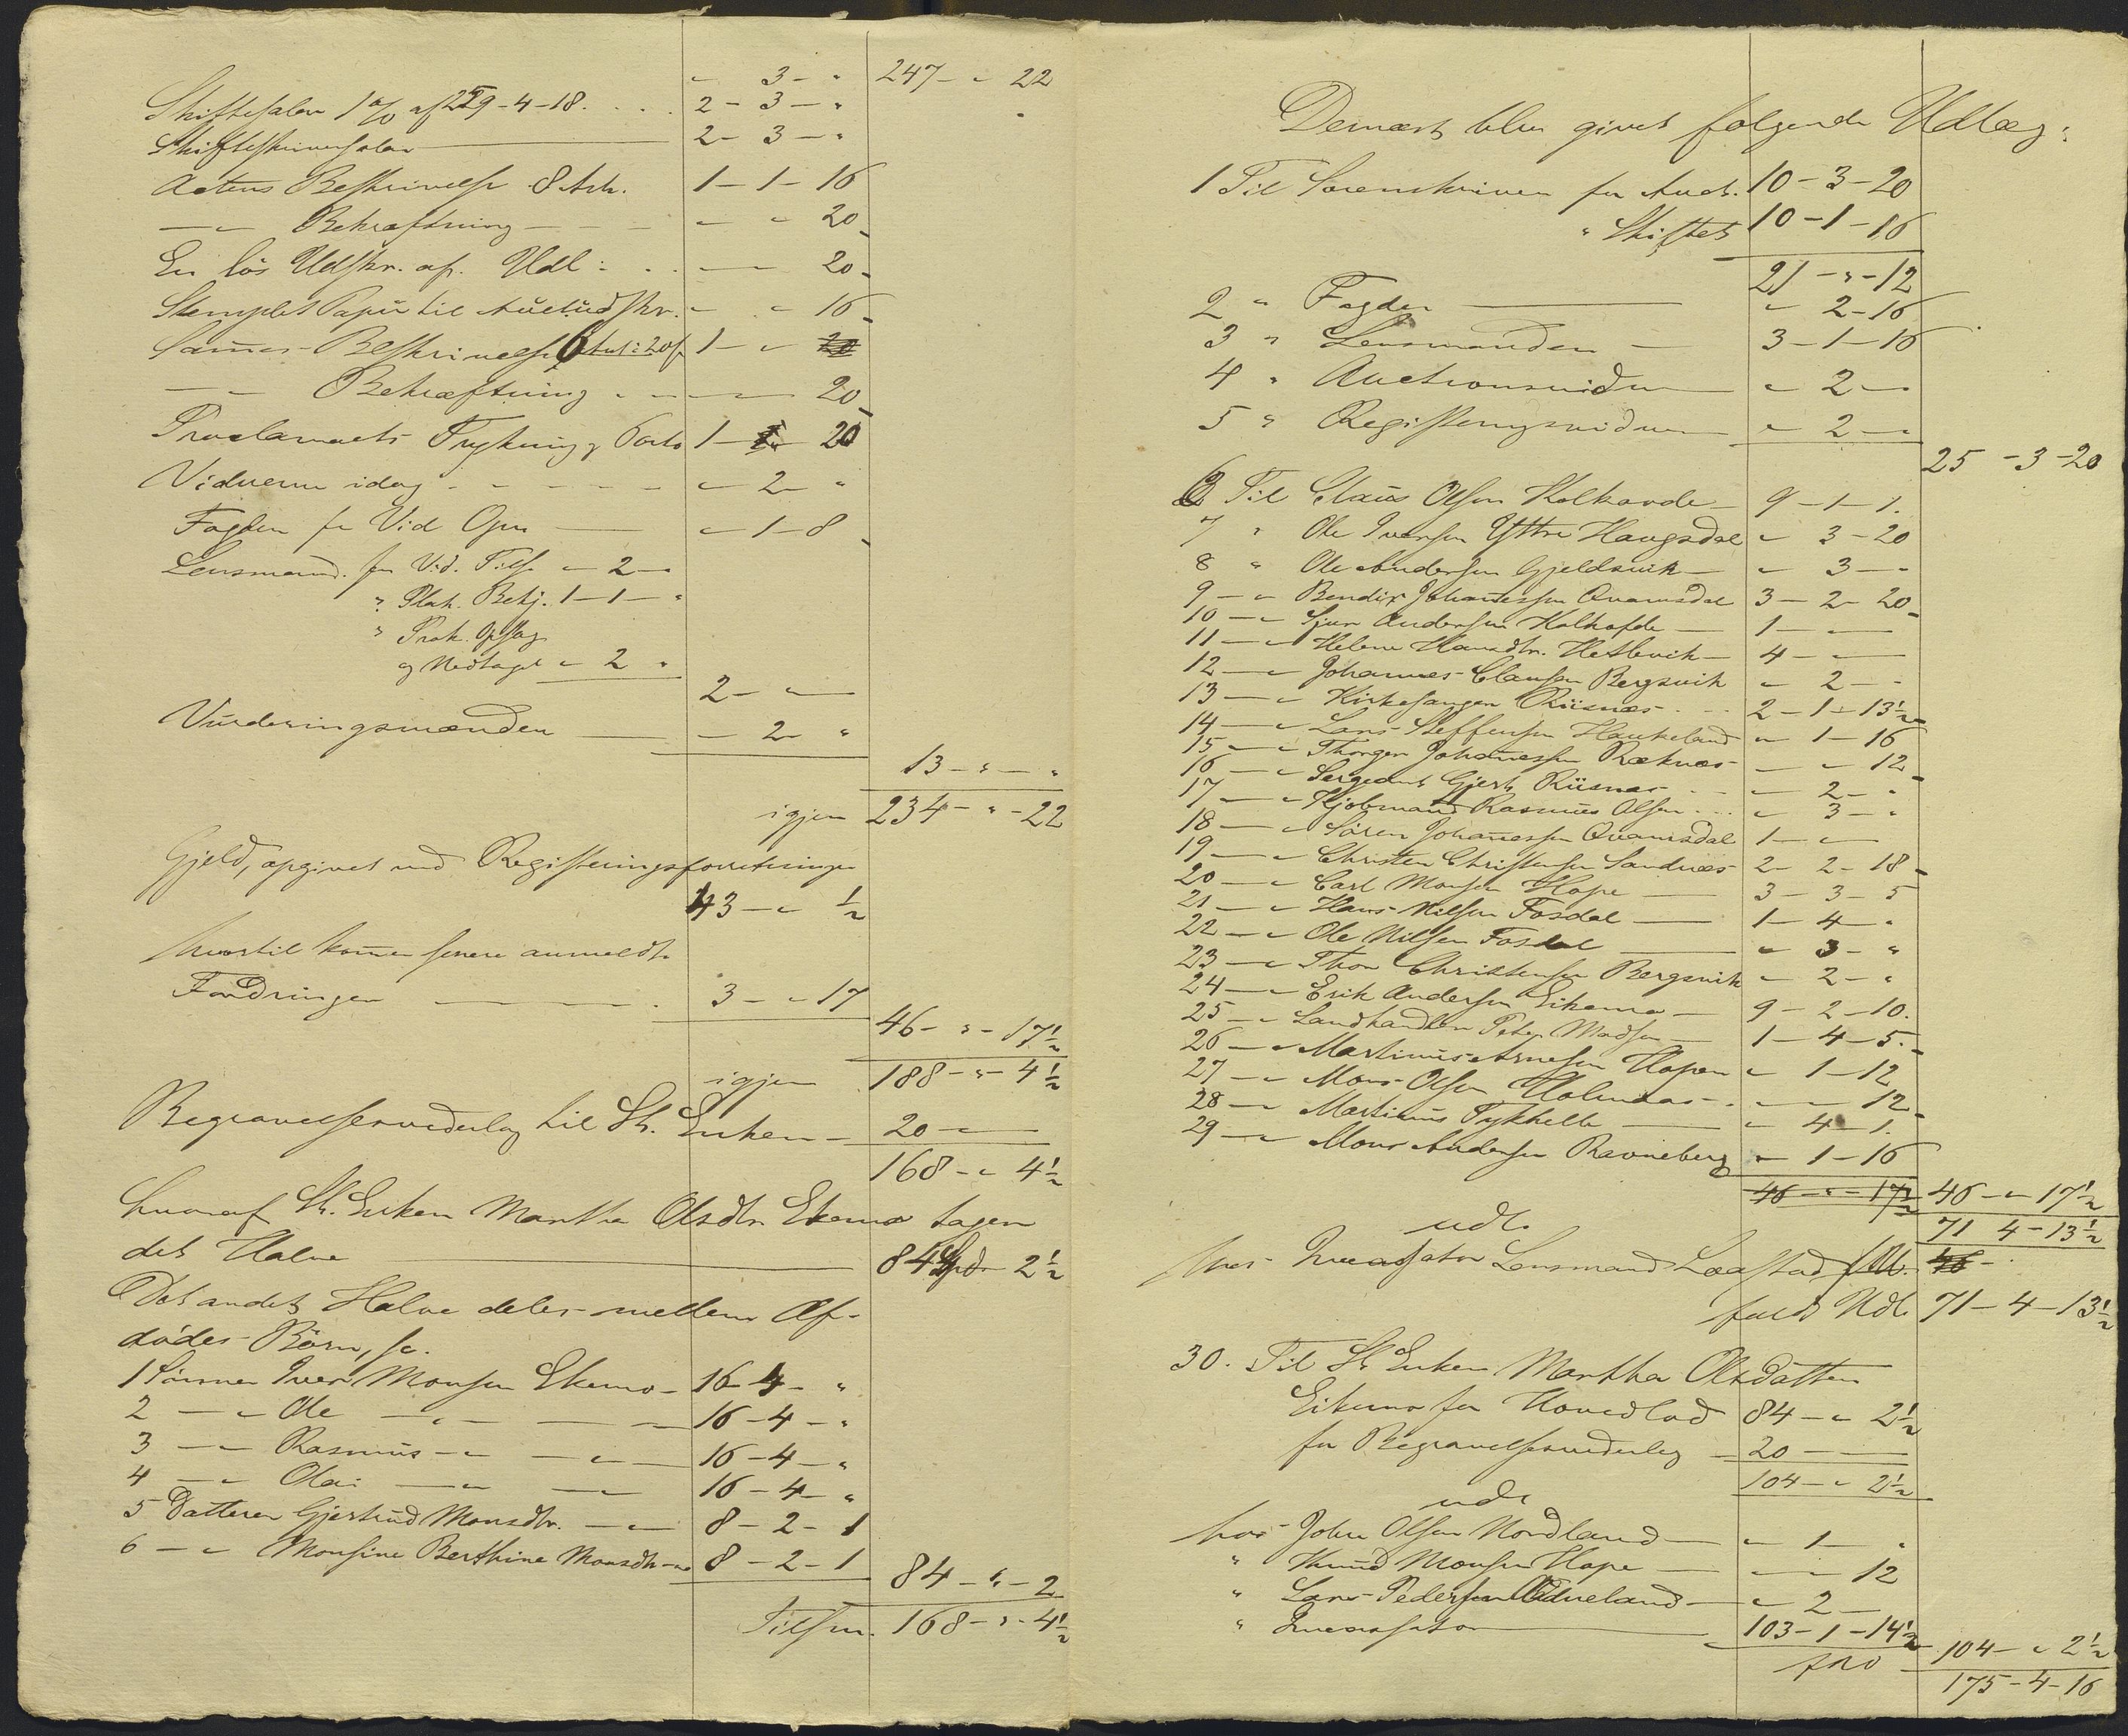 " 3 - " 247 - " 22
Skiftesalær 1 % af 229-4-18. . . . 2 - 3 - "
Skifteskriversalær 2 - 3 - "
Actens Beskrivelse 8 Ark. 1 - 1 - 16
— " Bekræftning - - - " " 20
En lös Udskr. af Udl: . . — 20
Stemplet Papir til Auctudskr. " " 16
Sammes Beskrivelse 6 Ark: 20 s 1 - "
— " Bekræftning . . — 20
Proclamaets Trykning og Porto 1 - 20
Vidnerne idag - - - - - " 2 - "
Fogden for Vid Opn — " 1 - 8
Lensmand. for Vid. Tils. " 2 - "
" Plak. Bekj. 1 - 1 - "
" Prok. Opslag
og Nedtagel " 2 "
2 - " —
Vurderingsmænden — " 2 - "
13 - " - "
igjen 234 - " - 22
Gjeld, opgivet ved Registreringsforretningen
43 - " ½
hvortil kommer senere anmeldte
Fordringer — — — . 3 - " 17
46 - " - 17½
igjen 188 - " - 4½
Begravelsesvederlag til St. Enken - 20 - " —
168 - " 4½
hvoraf St. Enken Martha Olsdtr. Ekemo tager
det Halve — 84 Spd 2½
Det andet Halve deles mellem Af-
dödes Börn, sc.
1 Sönnen Iver Monsen Ekemo - 16 - 4 - "
2 — " Ole — " — 16 - 4 - "
3 — " Rasmus — " — 16 - 4 - "
4 — " Olai — " — 16 - 4 - "
5 Datteren Gjertrud Monsdtr. — " 8 - 2 - 1
6 — " Monsine Berthine Monsdtr - " 8 - 2 - 1
84 - " - 2
Tilsm. 168 - " - 4½
Dernæst blev givet følgende Udlæg:
1 Til Sorenskriveren for Auct. 10 - 3 - 20
" Skiftet 10 - 1 - 16
21 - " - 12
2 " Fogden — " 2 - 16
3 " Lensmanden — 3 - 1 - 16
4 " Auctionsvidner — " 2 - "
5 " Registreringsvidner — " 2 - "
25 - 3 - 20
6 Til Claus Olsen Kolkovde - 9 - 1 - 1.
7 " Ole Iversen Yttre Haugsdal " 3 - 20
8 " Ole Andersen Gjeldsvik - " 3 - "
9 - " Bendix Johannessen Qvamsdal 3 - 2 - 20
10 - " Sjur Andersen Kolkofde — 1 - " —
11 - " Helene Hansdtr. Hetlevik - 4 - " —
12 - " Johannes Clausen Bergsvik " 2 - "
13 - " Kirkesanger Riisnæs - . . . 2 - 1 - 13½
14 - " Lars Steffensen Haukeland " 1 - 16
15 - " Thorger Johannessen Ræknæs - - " 12
16 - " Sergeant Gjert Riisnæs - - - " 2 - "
17 - " Kjöbmand Rasmus Olsen . . . " 3 - "
18 - " Sören Johannessen Qvamsdal 1 - " —
19 - " Christen Christensen Sandnæs - 2 - 2 - 18
20 - " Carl Monsen Hope — 3 - 3 - 5
21 - " Hans Nilsen Fosdal — 1 - 4 - "
22 - " Ole Nilsen Fosdal — " 3 - "
23 - " Thor Christensen Bergsvik " 2 - "
24 - " Erik Andersen Eikemo — 9 - 2 - 10.
25 - " Landhandler Peter Madsen — 1 - 4 - 5.
26 - " Martinus Arnesen Hopen " 1 - 12
27 - " Mons Olsen Holmaas - . — 12
28 - " Martinus Tykhelle — " 4 - 1.
29 - " Mons Andersen Ravneberg " 1 - 16
46 - " - 17½ 46 - " 17½
udl. 71 4 - 13½
hos Incassator Lensmand Laastad
fuldt Udl 71 - 4 - 13½
30. Til St. Enken Martha Olsdatter
Eikemo for Hovedlod 84 - " 2½
for Begravelsesvederlag - 20 - —
104 - " 2½
udl
hos John Olsen Nordland — " 1 - "
" Knud Monsen Hope — — 12
" Lars Pedersen Ædneland — " 2 -
" Incassator — 103 - 1 - 14½
104 - " 2½
175 - 4 - 16